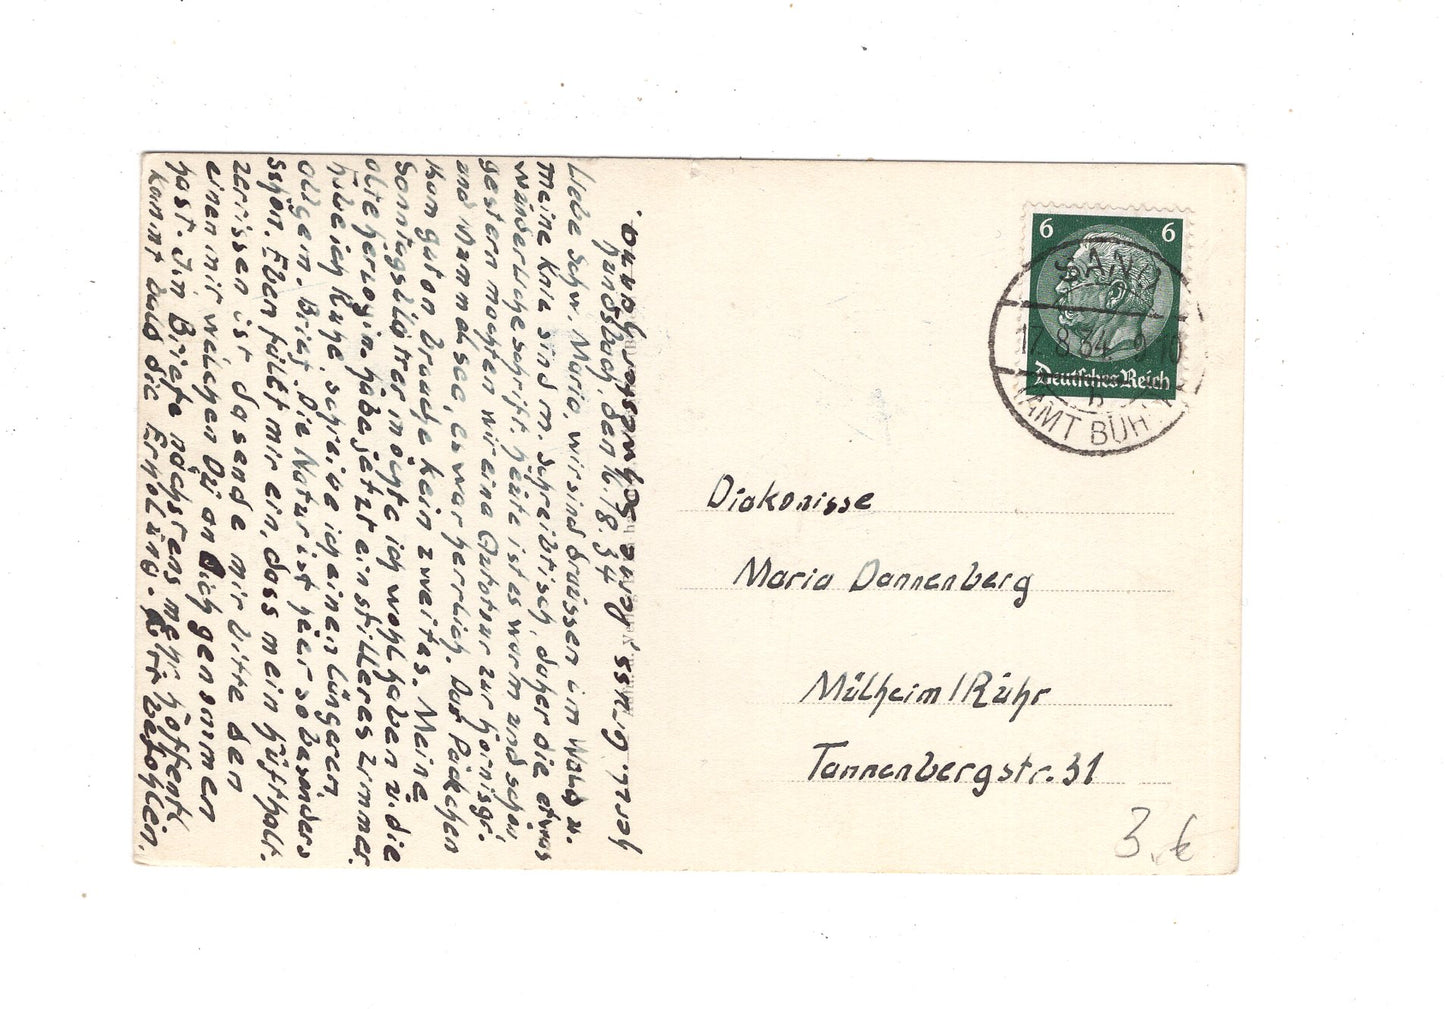 Hundsbach, den 16.8.34
Liebe Schw. Maria, wir sind draussen im Wald u.
meine Knie sind m. Schreibtisch, daher die etwas
wunderliche Schrift. Heute ist es warm und schön,
gestern machten wir eine Autotour zur Hornisgr.
und Mummelsee, es war herrlich. Das Päckchen
kam gut an brauche kein zweites. Meine
Sonntagsblätter möchte ich wohl haben u. die
alte Herzogin. Habe jetzt ein stilleres Zimmer
habe ich Ruhe, schreibe ich einen längeren
allgem. Brief. Die Natur ist hier so besonders
schön. Eben fällt mir ein, dass mein Hüfthalt.
zerrissen ist da sende mir bitte den
einen mir welchen Du an Dich genommen
hast. Im Briefe nächstens mehr hoffentl.
kannt bald die Erholung. Gott befohlen.
Herzl. Gruss, Deine Schwester
6 6
Deutsches Reich
SAND
17.8.34. 9-10
b
AMT BÜHL
Diakonisse
Maria Dannenberg
Mülheim/Ruhr
Tannenbergstr. 31
3.€